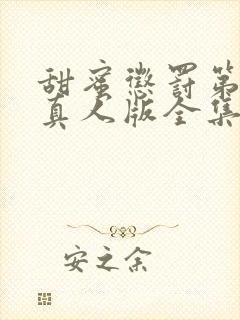 甜蜜惩罚第
真人版全集
安之余